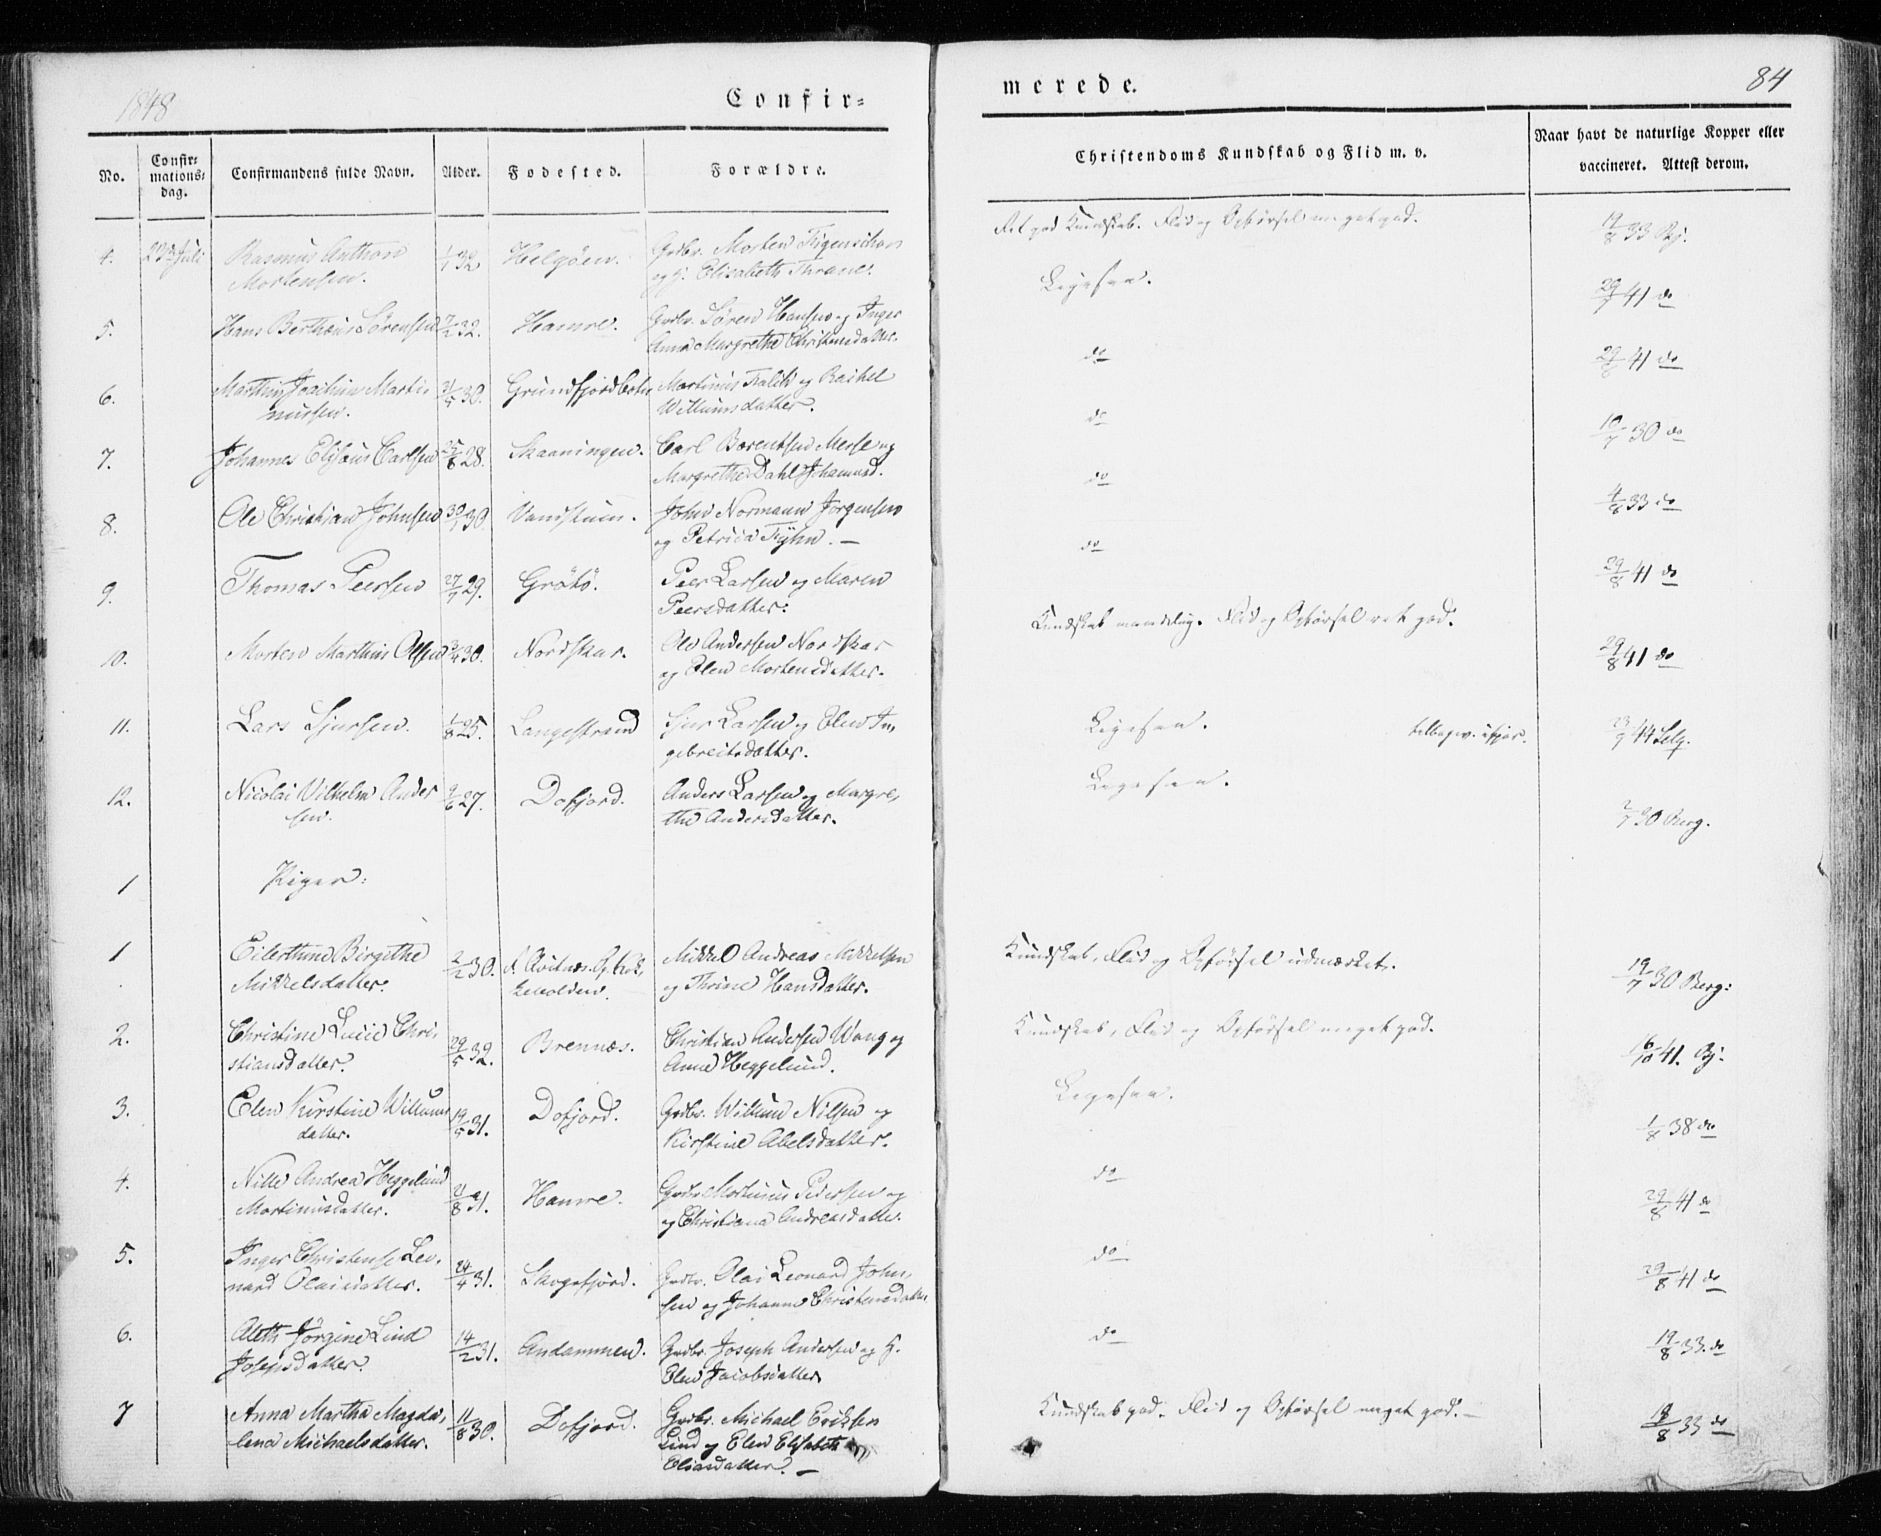 1848
Confir=
merede.
84
No.
Confir=
mations=
dag.
Confirmandens fulde Navn.
Alder.
Fodested.
Forældre.
Christendoms Kundskab og Flid m. v.
Naar havt de naturlige Kopper eller
vaccineret. Attest derom.
4. 23de Juli Rasmus Anthon 1/1 32 Helgöen. Grdbr. Morten Figenschou
Mortensen. og H. Elisabeth Thrane.
Ret god Kundskab. Flid og Opförsel meget god. 19/8 33 Bj.
5. Hans Bertheus Sörensen 7/2 32. Hamre. Grdbr. Sören Hansen og Inger
Anna Margrethe Christensdatter.
Ligesaa. 29/7 41 do
6. Marthin Joachim Marti 31/5 30. Grundfjordbotn Martinus Falck og Rachel
nussen. Willumsdatter.
do 29/8 41 do
7. Johannes Elisæus Carlsen 25/8 28. Skaaningen. Carl Berentsen og
Margrethe Dahl Johannesd.
do 10/7 30 do
8. Ole Christian Johnsen 30/1 30. John Normann Jörgensen
og Petrica Fyhn. —
do 4/8 33 do
9. Thomas Peersen 27/7 29. Grötö. Peer Larsen og Maren
Peersdatter.
do 29/8 41 do
10. Morten Marthin Olsen 3/4 30. Nordskar. Ole Andersen Nordskar
og Elen Mortensdatter.
Kundskab maadelig. Flid og Opförsel ret god. 29/8 41 do
11. Lars Sjursen. 1/8 25. Langestrand Sjur Larsen og Elen In,
gebreitsdatter.
Ligesaa. 23/9 44 Selg.
12. Nicolai Vilhelm Ander 9/6 27. Dofjord. Anders Larsen og Margre,
sen. the Andersdatter.
Ligesaa. 2/7 30 Berg.
1 Piger:
1 Eilertine Birgithe 2/2 30. Mikkel Andreas Mikkelsen
Mikkelsdatter. og Thrine Hansdatter.
Kundskab, Flid og Opförsel udmærket. 19/7 30 Berg:
2. Christine Lucie Chri, 29/5 32. Brennæs. Christian Andersen Wang og
stiansdatter. Anne Heggelund.
Kundskab, Flid og Opförsel meget god. 6/10 41. Bj.
3. Elen Kirstine Willums 19/5 31. Dofjord. Grdbr. Willum Nilsen og
datter. Kirstine Abelsdatter.
Ligesaa. 1/8 38 do
4. Nille Andrea Heggelund 21/8 31. Hamre. Grdbr Martinus Pedersen og
Martinusdatter. og Christiana Andreasdatter.
do 29/8 41 do
5. Inger Christense Leo, 24/4 31. Skogsfjord. Grdbr. Olai Leonard John,
nard Olaisdatter. sen og Johanne Christensdatter
do 29/8 41 do
6. Aleth Jörgine Lind 14/2 31. Andammen. Grdbr. Joseph Andersen og H.
Josephsdatter. Elen Jacobsdatter.
do 19/8 33. do
7 Anna Martha Magda, 11/8 30. Dofjord. Grdbr. Michael Eriksen
lena Michaelsdatter. Lind og Elen Elisabeth
Eliasdatter. —
Kundskab god. Flid og Opförsel meget god. — 19/8 33 do